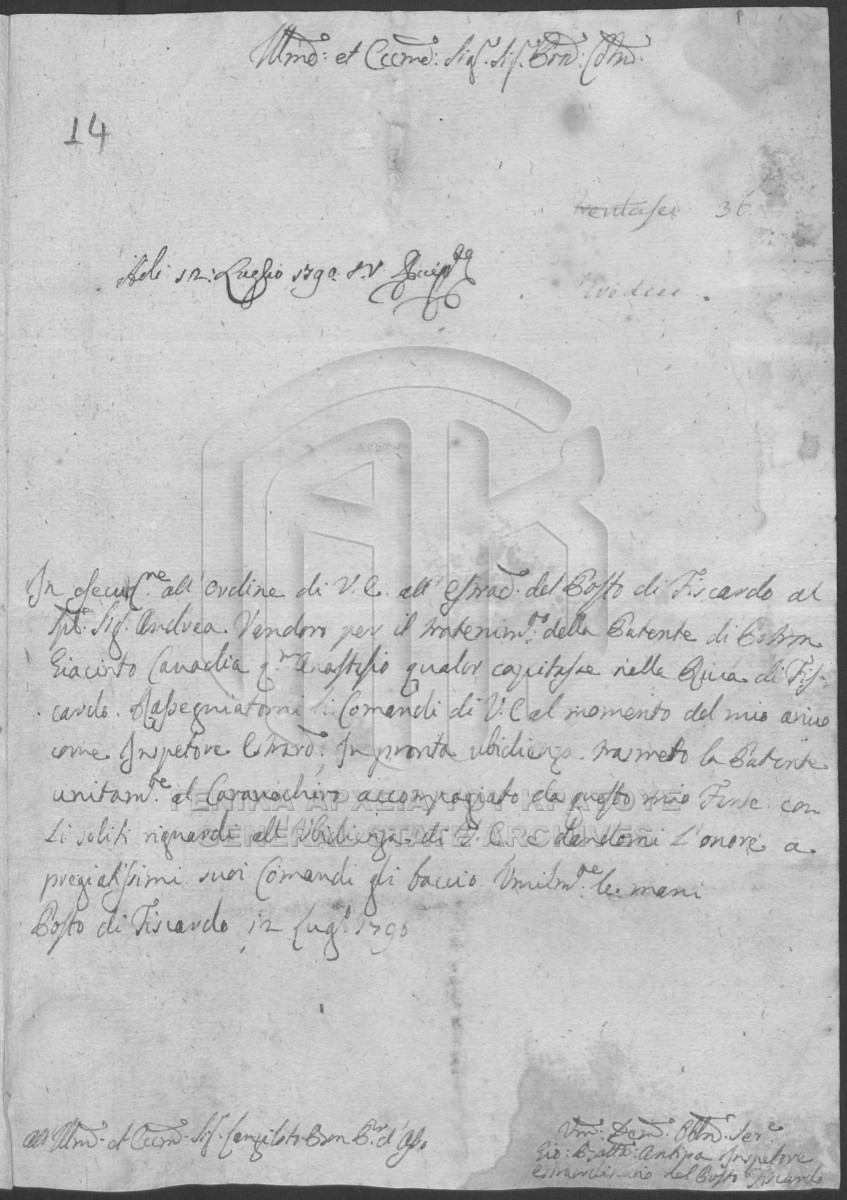 Illmo: et Eccmo: Sigr. Sigr. Pron: Colmo:
14
trentasei 36
Adi 12: Luglio 1790. S.V.
In esecuzne all'ordine di V.E. all'Estrard: del Posto di Fiscardo al
Spl: Sigr. Andrea Vandoro per il tratenimto: della Patente di Patron
Giacinto Cavadia qm Anastasio qualor capitasse nella Riva di Fis-
cardo. Rassegniatomi li Comandi di V.E al momento del mio arivo
come Inspetore Estrard:, In pronta ubidienza trasmeto la Patente
unitamte: al Caravochiro accompagiato da questo mio Fante con
Li soliti riguardi all'Ubidienza di V.E. e dandomi L'onore a
pregiatissimi suoi Comandi gli baccio Umilmte: le mani
Posto di Fiscardo 12 Lugo: 1790
Illmo: et Eccmo: Sigr. Bon Pr: d'Aso
Umo: Devmo: Obbmo: Sere
Gio: Batta: Antipa Inspetore
Estraordinario del Posto Fiscardo
ΓΕΝΙΚΑ ΑΡΧΕΙΑ ΤΟΥ ΚΡΑΤΟΥΣ
GENERAL STATE ARCHIVES